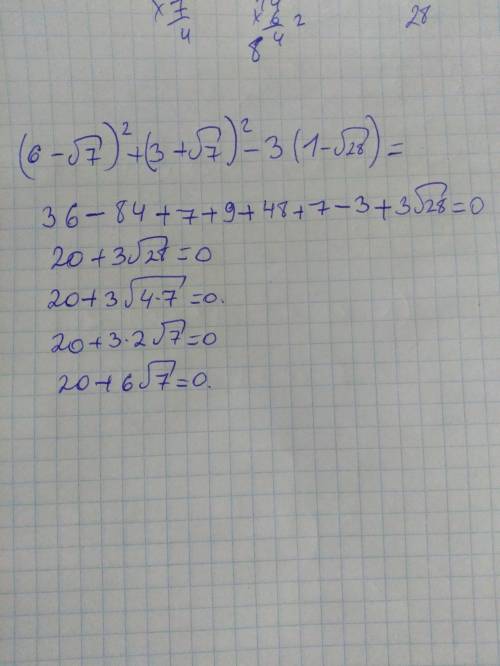 ×7 ×6 2 28
4 84
(6-√7)²+(3+√7)²-3(1-√28)=
36-84+7+9+48+7-3+3√28=0
20+3√28=0
20+3√4·7=0.
20+3·2√7=0
20+6√7=0.